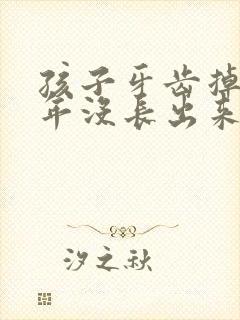 孩子牙齿掉
年没长出来
汐之秋